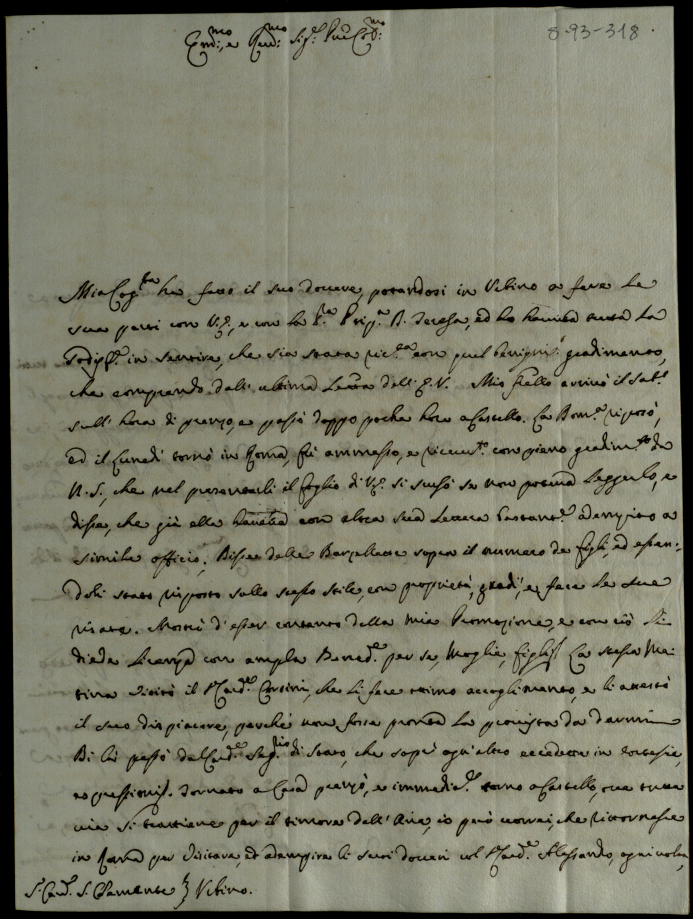 8-93-318
Em̄o:, e Rev̄mo: Sig.r Pne Col̄mo:
Mia Cog.ta ha fatto il suo dovere, portandosi in Urbino a fare le
sue parti con V.E., e con la S.ra Prip.a D. Teresa, ed ho havuta tutta la
Sodisf.e in sentire, che sia stata ric.ta con quel benigniss.o gradimento,
che comprendo dall' ultima Lettera dell' E.V. Mio frello arrivò il Sab.o
sull' hora di pranzo, e passò doppo poche hore a Castello. La Dom.ca riposò,
ed il Lunedì tornò in Roma, fù ammesso, e ricevuto con pieno gradim.to da
N.S., che nel presentarli il foglio di V.E. si scusò se non poteva leggerlo, e
disse, che già ella haveva con altra sua Lettera bastant.e adempito a
simile officio. Disse delle Barzellette sopra il numero de figli, ed essen-
doli stato risposto sullo stesso stile, con proprietà, gradì, e fece le sue
risate. Mostrò d'esser contento della mia Promozione, e con ciò li
diede licenza con ampla Bened.e per se, Moglie, e figli. La stessa Mat-
tina visitò il S.r Card.e Corsini, che li fece ottimo accoglimento, e li attestò
il suo dispiacere, perché non fosse pronta la provista da darmi.
Di lì passò dal Card.e Seg.rio di Stato, che sopra ogn'altro eccedette in cortesie,
espressioni. Tornato a Casa pranzò, e immedia.te tornò a Castello, ove tutta
via si trattiene per il timore dell' Aria, io però vorrei, che ritornasse
in Roma per visitare, ed adempire li suoi doveri col S.r Card.e Alessandro, ogni volta,
S.r Card.e S. Clemente Urbino.